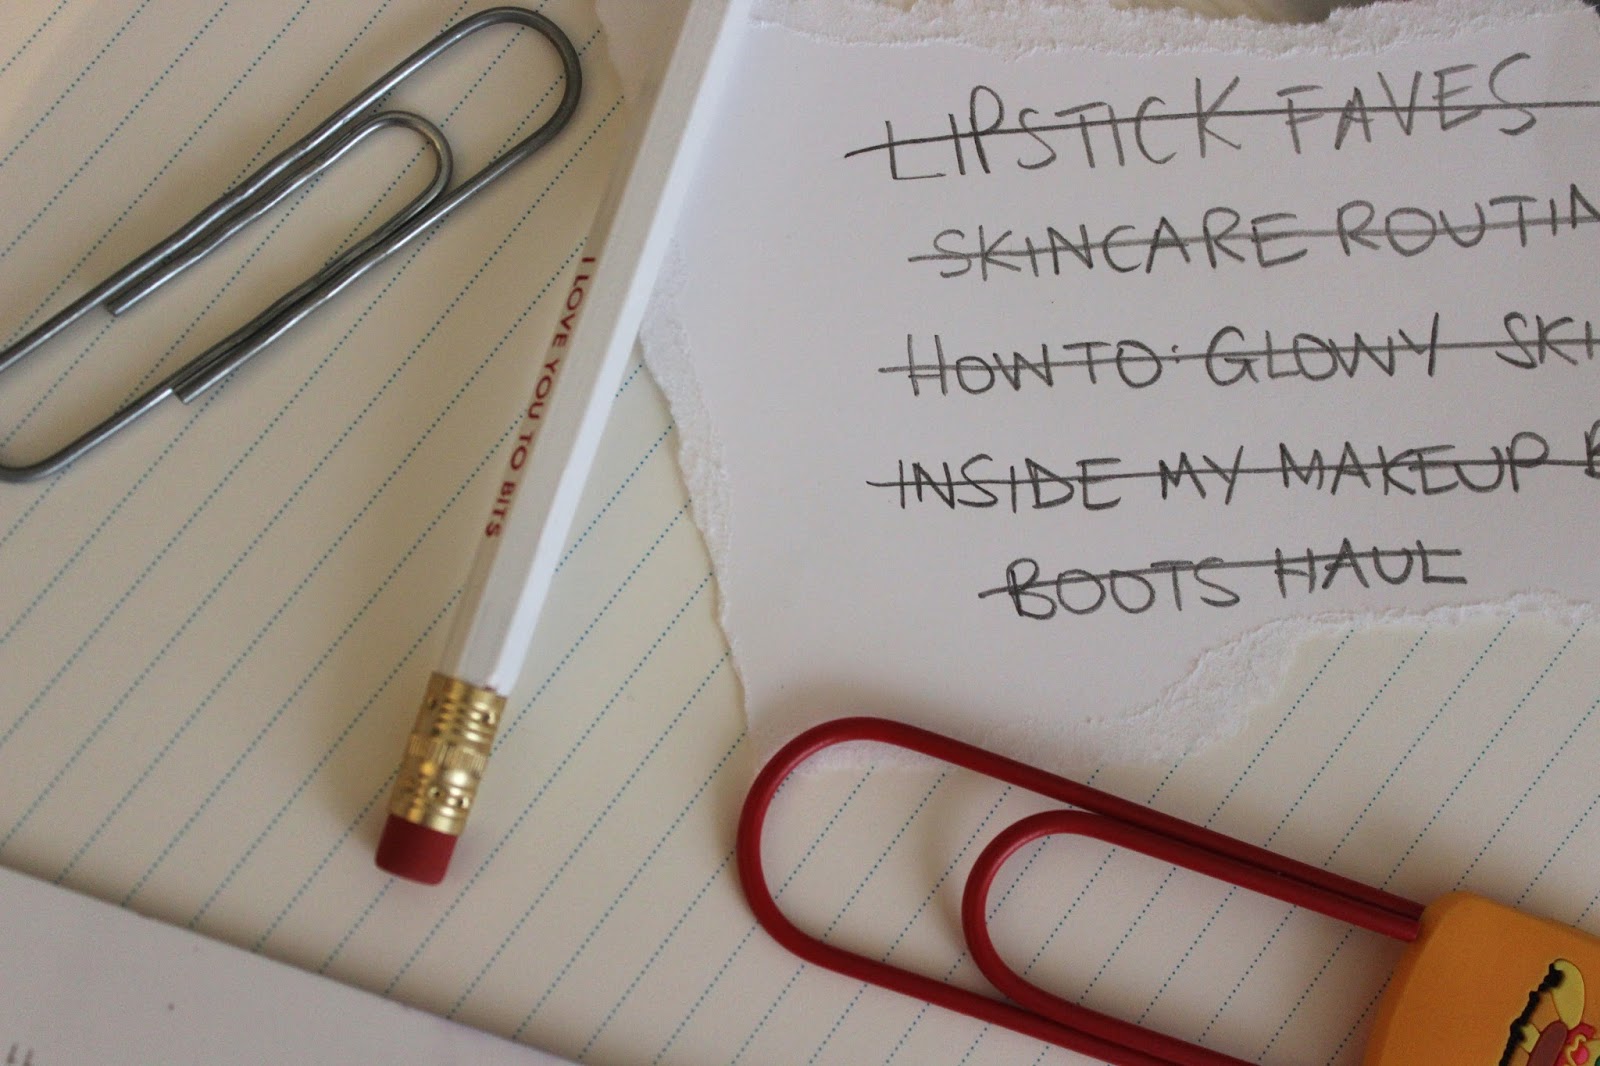 LIPSTICK FAVES
SKINCARE ROUTIN
HOW TO: GLOWY SKI
INSIDE MY MAKEUP B
BOOTS HAUL
I LOVE YOU TO BITS